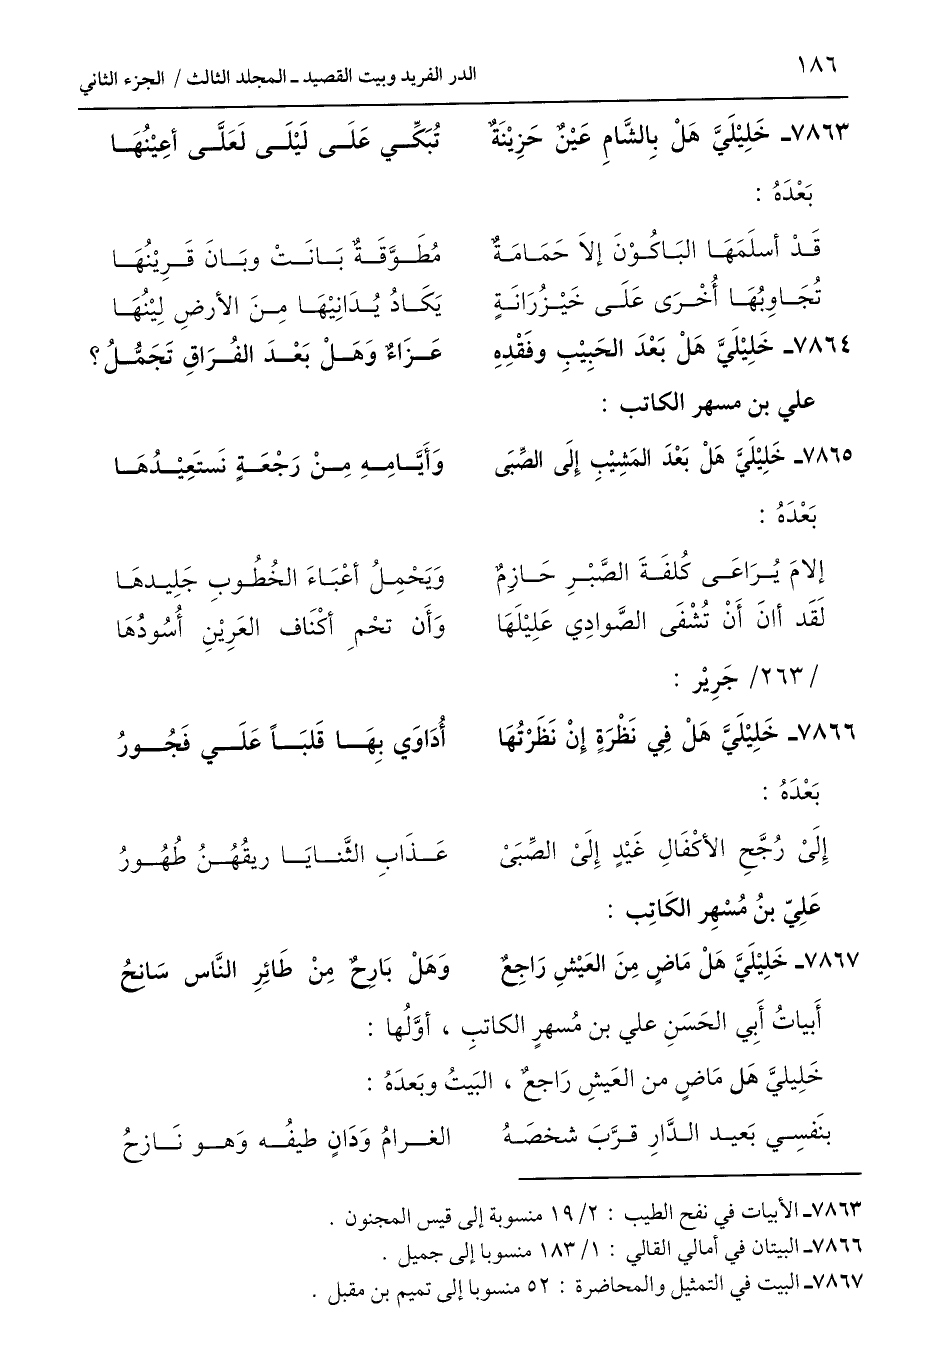 ١٨٦
الدر الفريد وبيت القصيد ـ المجلد الثالث / الجزء الثاني
٧٨٦٣ـ خَلِيْلَيَّ هَلْ بِالشَّامِ عَيْنٌ حَزِيْنَةٌ تُبَكِّي عَلَى لَيْلَى لَعَلَّى أعِيْنُهَا
بَعْدَهُ :
قَدْ أسلَمَهَا البَاكُوْنَ إلاَ حَمَامَةٌ مُطَوَّقَةٌ بَانَتْ وبَانَ قَرِيْنُهَا
تُجَاوِبُهَا أُخْرَى عَلَى خَيْزُرَانَةٍ يَكَادُ يُدَانِيْهَا مِنَ الأرضِ لِيْنُهَا
٧٨٦٤ـ خَلِيْلَيَّ هَلْ بَعْدَ الحَبِيْبِ وفَقْدِهِ عَزَاءٌ وَهَلْ بَعْدَ الفُرَاقِ تَجَمُّلُ؟
علي بن مسهر الكاتب :
٧٨٦٥ـ خَلِيْلَيَّ هَلْ بَعْدَ المَشِيْبِ إلَى الصِّبَى وَأَيَّامِهِ مِنْ رَجْعَةٍ نَستَعِيْدُهَا
بَعْدَهُ :
إلامَ يُرَاعَى كُلفَةَ الصَّبْرِ حَازِمٌ وَيَحْمِلُ أعْبَاءَ الخُطُوبِ جَلِيدهَا
لَقَد أانَ أنْ تُشْفَى الصَّوادِي غَلِيْلَهَا وَأَن تحْمِ أكْنَاف العَرِيْنِ أُسُودُهَا
/ ٢٦٣/ جَرِيْر :
٧٨٦٦ـ خَلِيْلَيَّ هَلْ فِي نَظْرَةٍ إنْ نَظَرْتُهَا أُدَاوَي بِهَا قَلبَاً عَلَي فَجُورُ
بَعْدَهُ :
إلَىْ رُجَّحِ الأكْفَالِ غَيْدٍ إلَىْ الصِّبَىْ عَذَابِ الثَّنايَا رِيقُهُنُ طُهُورُ
عَلِيّ بنُ مُسْهِر الكَاتِب :
٧٨٦٧ـ خَلِيْلَيَّ هَلْ مَاضٍ مِنَ العَيْشِ رَاجِعٌ وَهَلْ بَارِحٌ مِنْ طَائِرِ النَّاس سَانحُ
أَبياتُ أَبِي الحَسَنِ علي بن مُسهرٍ الكاتبِ ، أوَّلُها :
خَلِيليَّ هَل مَاضٍ من العَيشِ رَاجعٌ ، البَيتُ وبَعدَهُ :
بنَفْسِي بَعيد الدَّارِ قرَّبَ شخصَهُ الغرامُ وَدَانٍ طيفُه وَهو نَازحُ
٧٨٦٣ـ الأبيات في نفح الطيب : ١٩/٢ منسوبة إلى قيس المجنون .
٧٨٦٦ـ البيتان في أمالي القالي : ١٨٣/١ منسوبا إلى جميل .
٧٨٦٧ـ البيت في التمثيل والمحاضرة : ٥٢ منسوبا إلى تميم بن مقبل .